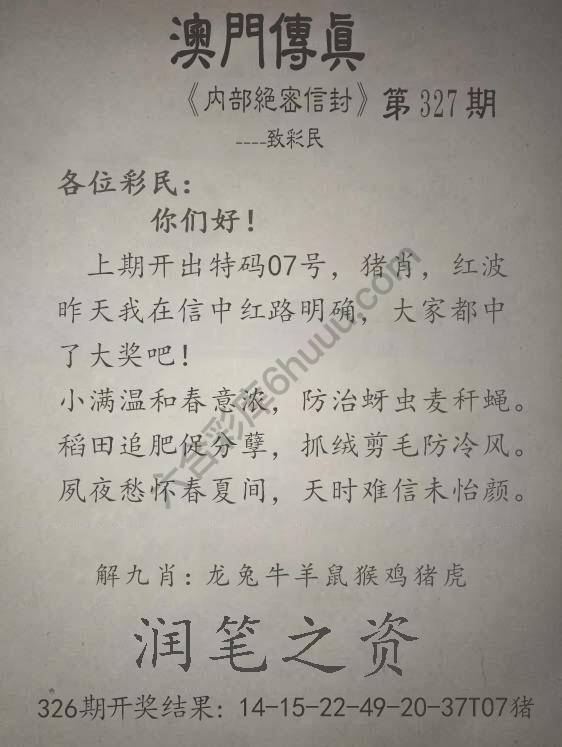 澳門傳眞
《内部絕密信封》第327期
----致彩民
各位彩民：
你们好！
上期开出特码07号，猪肖，红波
昨天我在信中红路明确，大家都中
了大奖吧！
小满温和春意浓，防治蚜虫麦秆蝇。
稻田追肥促分孽，抓绒剪毛防冷风。
夙夜愁怀春夏间，天时难信未怡颜。
解九肖：龙兔牛羊鼠猴鸡猪虎
润笔之资
326期开奖结果：14-15-22-49-20-37T07猪
六合彩库6huuu.com